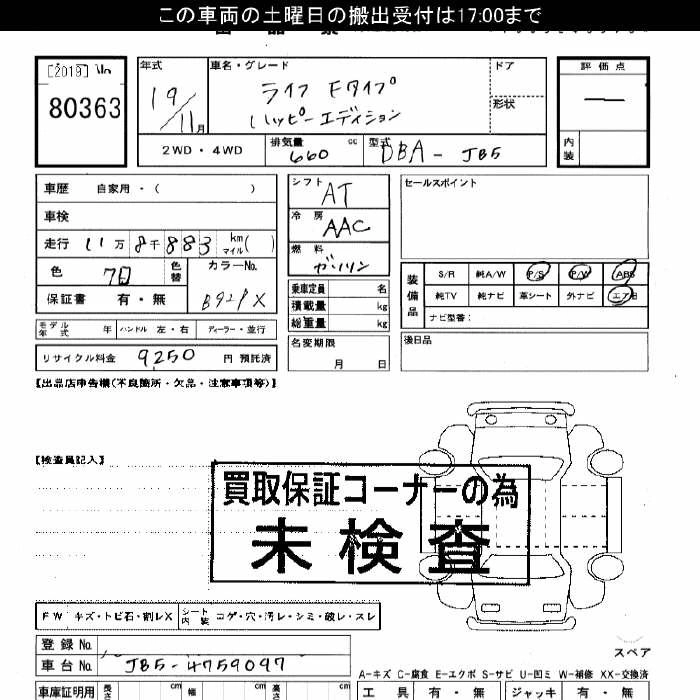 この車両の土曜日の搬出受付は17:00まで
[2019] No
80363
年式 車名・グレード ドア 評価点
19/11月 ライフ Fタイプ 形状 —
ハッピーエディション
2WD・4WD 排気量 660 cc 型式 DBA-JB5 内装
車歴 自家用・( ) シフト AT セールスポイント
車検 冷房 AAC
走行 11万8千883 km マイル( ) 燃料 ガソリン
色 色替 カラーNo. 乗車定員 名 装備品 S/R 純A/W P/S P/W ABS
保証書 有・無 B92PX 積載量 kg 純TV 純ナビ 革シート 外ナビ エアB
総重量 kg ナビ型番:
モデル年式 年 ハンドル 左・右 ディーラー・並行 名変期限 月 日 後日品
リサイクル料金 9250 円 預託済
【出品店申告欄(不良箇所・欠品・注意事項等)】
【検査員記入】
買取保証コーナーの為
未検査
FW キズ・トビ石・割レX シート内装 コゲ・穴・汚レ・シミ・破レ・スレ
登録No.
車台No. JB5-4759097
スペア
A-キズ C-腐食 E-エクボ S-サビ U-凹ミ W-補修 XX-交換済
車庫証明用 長さ cm 幅 cm 高さ cm 工具 有・無 ジャッキ 有・無